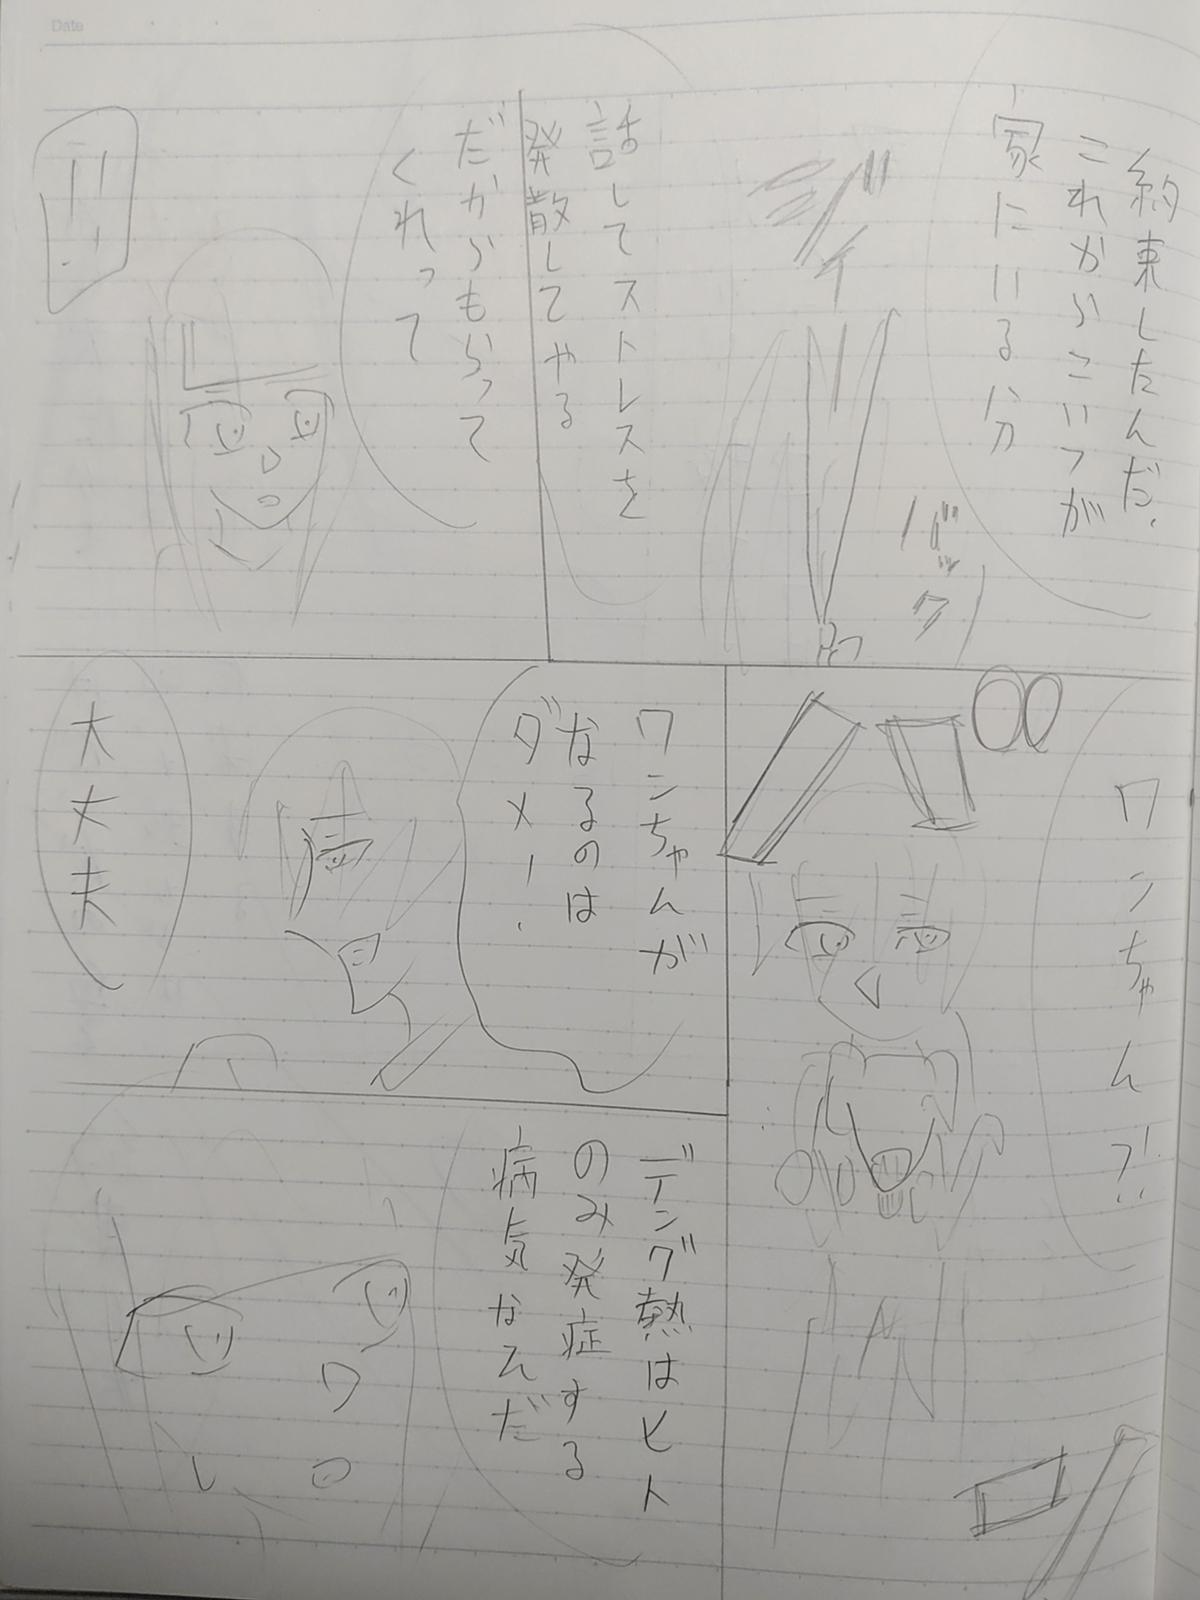 Date
約束したんだ、
これからこいつが
家にいる分
バック
話してストレスを
発散してやる
だからもらって
くれって
!!
ワンちゃん?!
ワンちゃんが
なるのは
ダメー!
大丈夫
デング熱はヒト
のみ発症する
病気なんだ